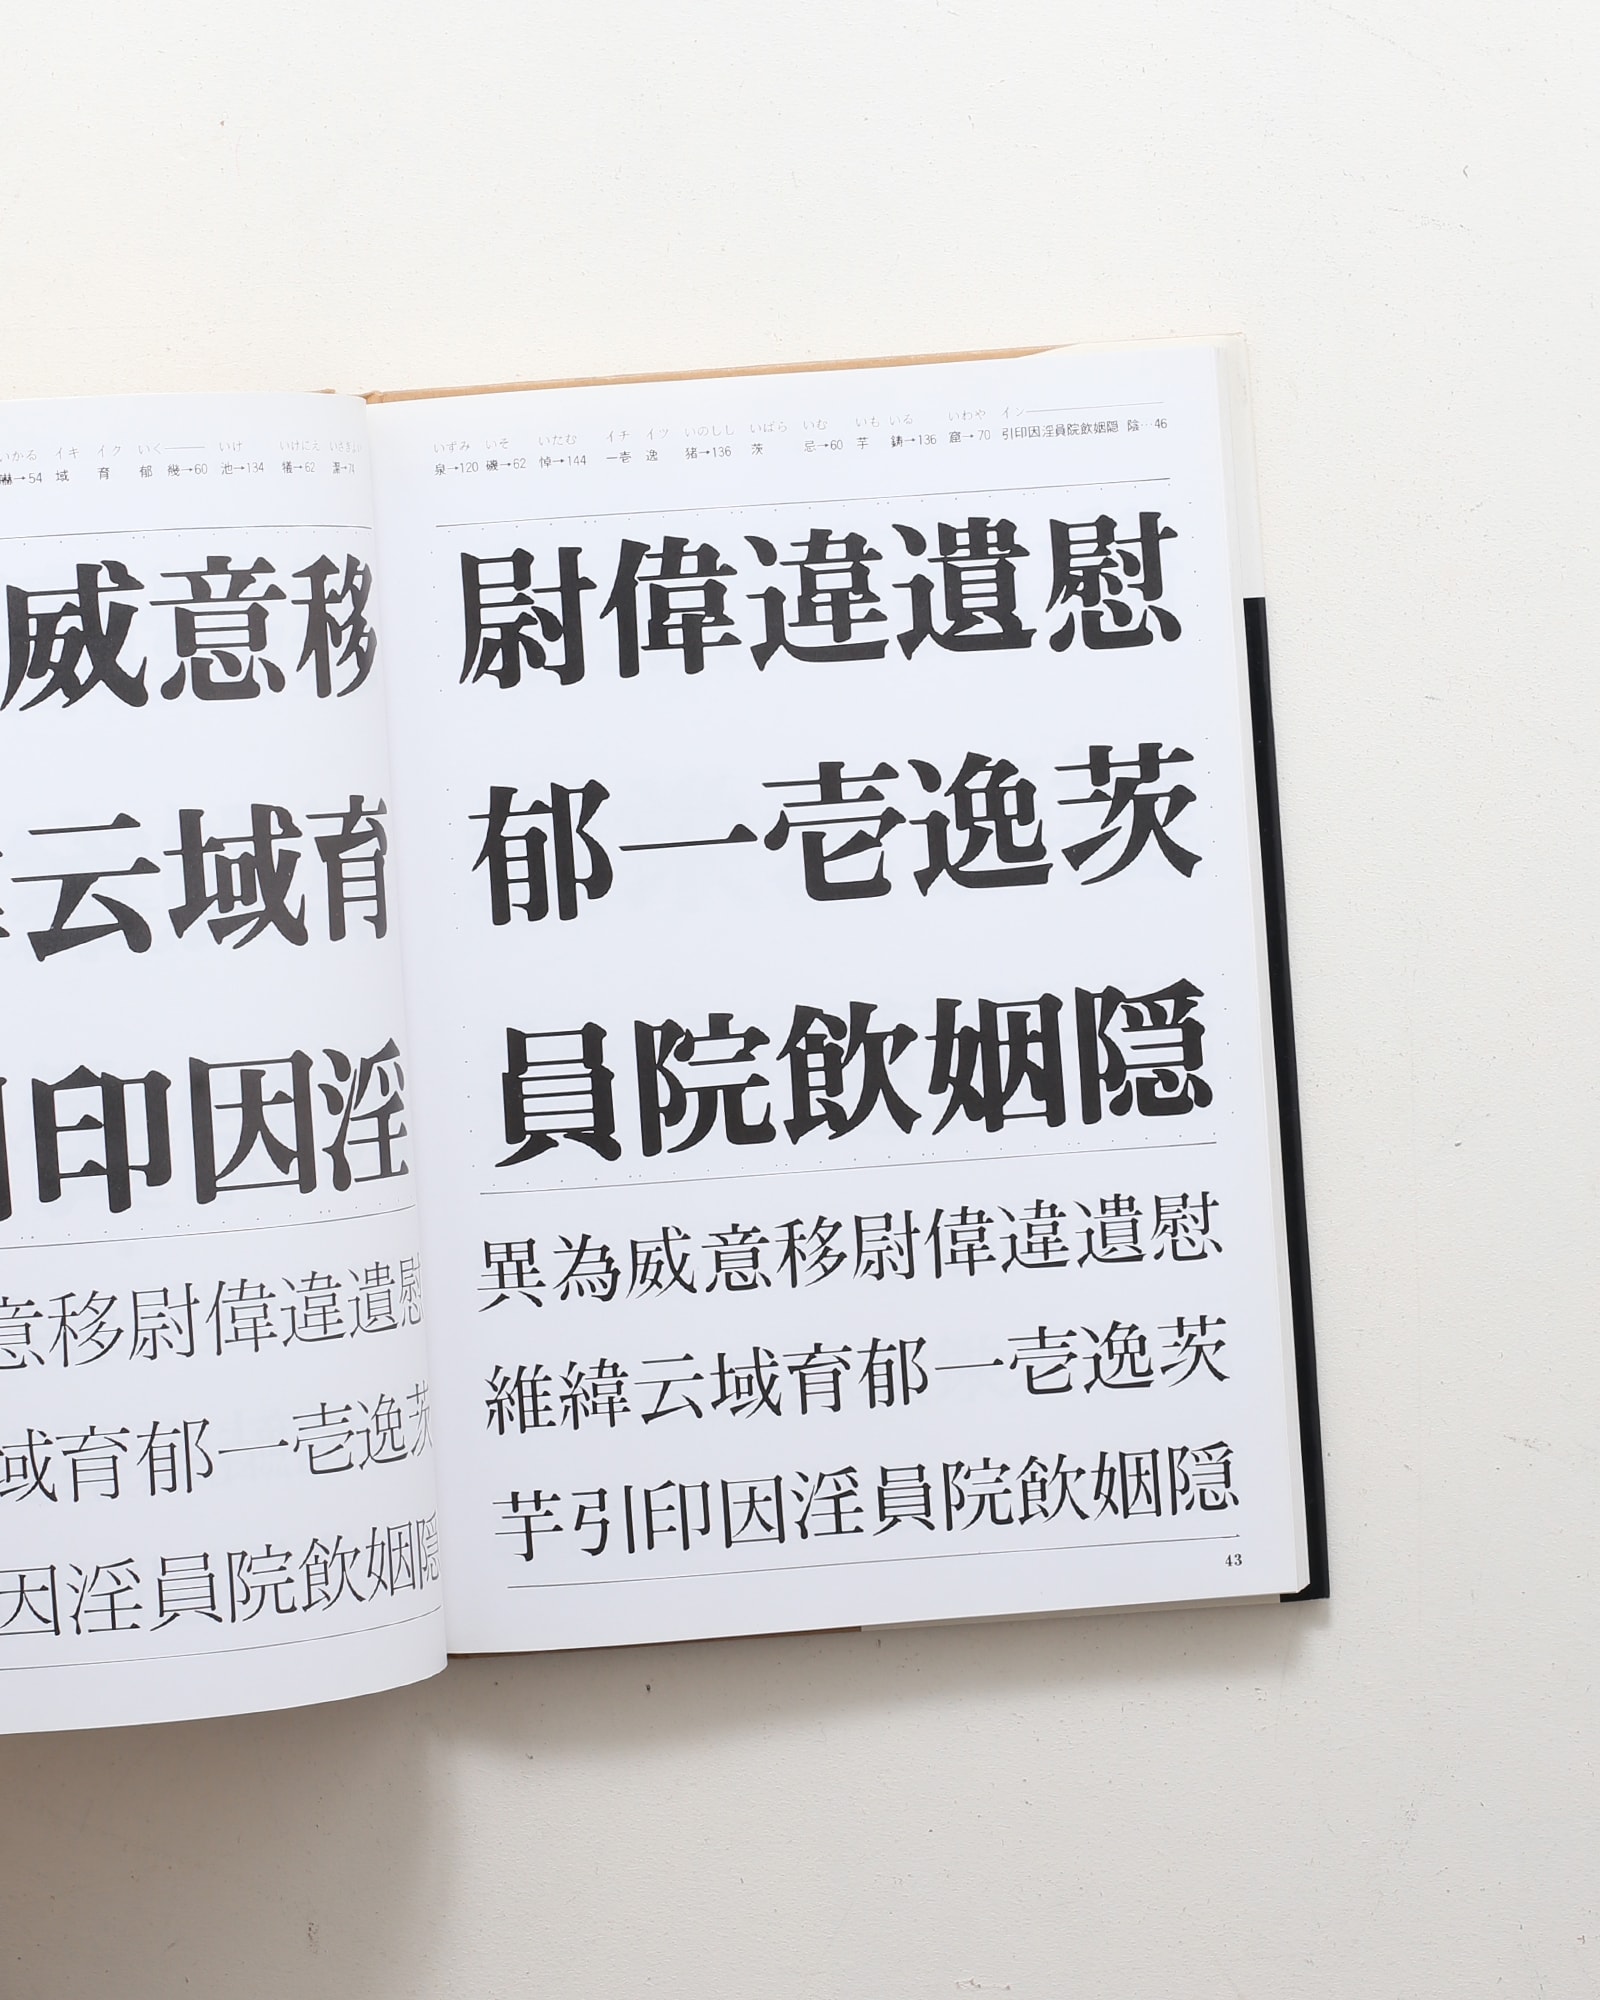 いかる イキ イク いく── いけ いけにえ いさぎよい
→54 域 育 郁 幾→60 池→134 犠→62 潔→74
威意移
云域育
印因淫
意移尉偉違遺慰
域育郁一壱逸茨
因淫員院飲姻隠
いずみ いそ いたむ イチ イツ いのしし いばら いむ いも いる いわや イン──
泉→120 磯→62 悼→144 一壱 逸 猪→136 茨 忌→60 芋 鋳→136 窟→70 引印因淫員院飲姻隠 陰…46
尉偉違遺慰
郁一壱逸茨
員院飲姻隠
異為威意移尉偉違遺慰
維緯云域育郁一壱逸茨
芋引印因淫員院飲姻隠
43